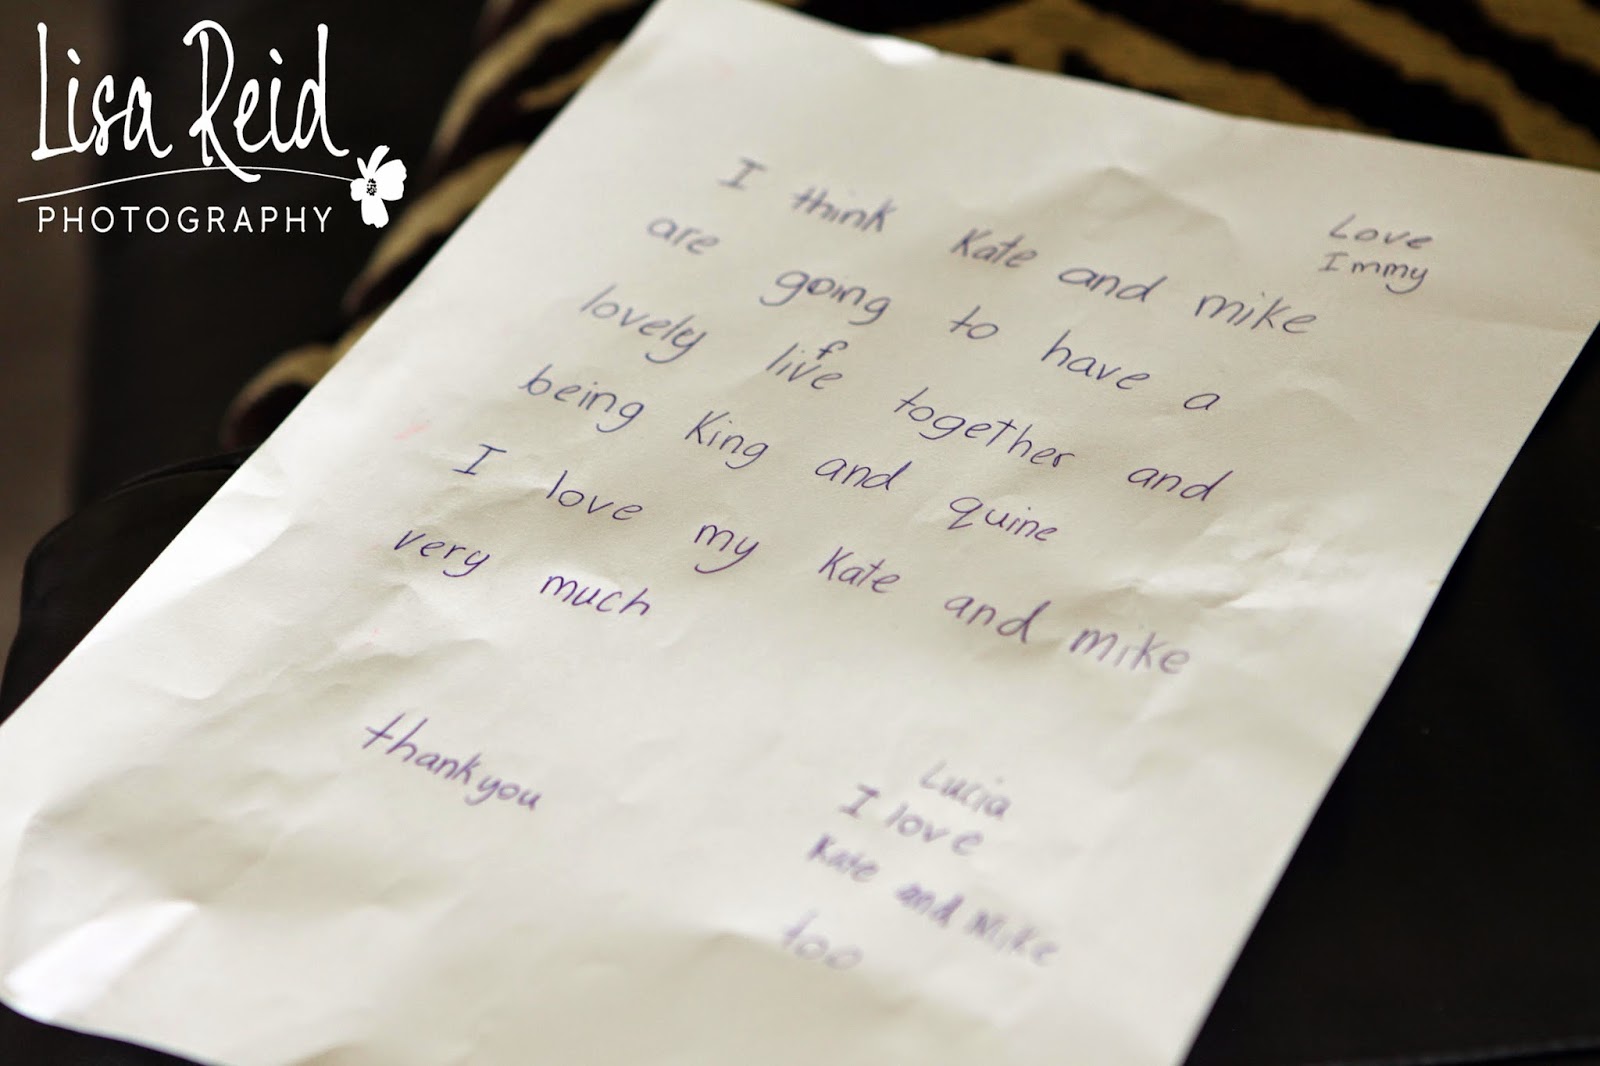 Lisa Reid
PHOTOGRAPHY
Love
Immy
I think Kate and mike
are going to have a
lovely life together and
being King and quine
I love my Kate and mike
very much
thankyou
Lucia
I love
Kate and Mike
too